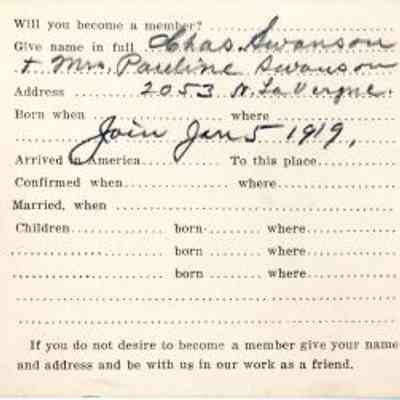 Will you become a member? ....................
Give name in full Chas. Swanson
+ Mrs. Pauline Swanson
Address 2053 N. La Vergne.
Born when .............. where ..............
Join Jan 5 1919.
Arrived in America............ To this place............
Confirmed when............ where............
Married, when ........................
Children............ born ........ where............
............ born ........ where............
............ born ........ where............
If you do not desire to become a member give your name
and address and be with us in our work as a friend.